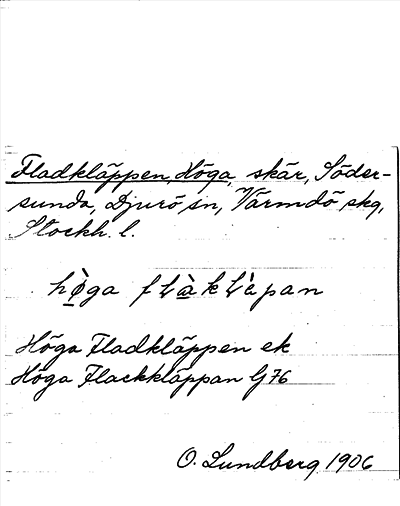 Fladkläppen, Höga, skär, Söder-
sunda, Djurö sn, Värmdö skg,
Stockh. l.
hø̀ga flàklæ̀pan
Höga Fladkläppen ek
Höga Flackkläppan G 76
O. Lundberg 1906